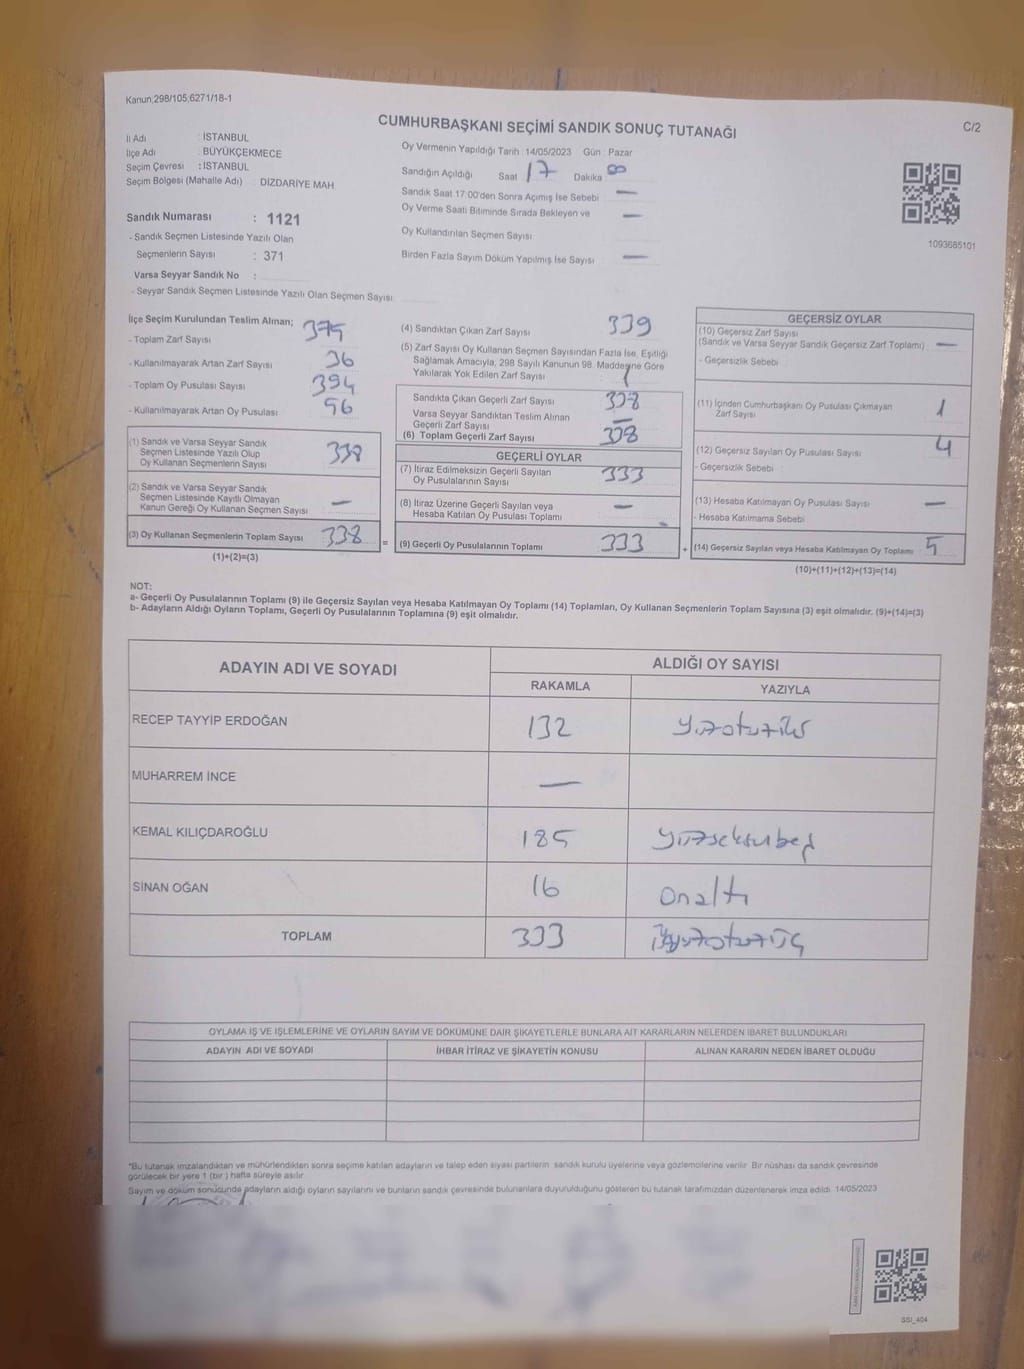 Kanun;298/105;6271/18-1
CUMHURBAŞKANI SEÇİMİ SANDIK SONUÇ TUTANAĞI
C/2
İl Adı : İSTANBUL
İlçe Adı : BÜYÜKÇEKMECE
Seçim Çevresi : İSTANBUL
Seçim Bölgesi (Mahalle Adı) : DİZDARİYE MAH
Sandık Numarası : 1121
- Sandık Seçmen Listesinde Yazılı Olan
Seçmenlerin Sayısı : 371
Varsa Seyyar Sandık No :
- Seyyar Sandık Seçmen Listesinde Yazılı Olan Seçmen Sayısı
Oy Vermenin Yapıldığı Tarih : 14/05/2023 Gün : Pazar
Sandığın Açıldığı Saat 17 Dakika 8
Sandık Saat 17:00'den Sonra Açımış İse Sebebi —
Oy Verme Saati Bitiminde Sırada Bekleyen ve —
Oy Kullandırılan Seçmen Sayısı
Birden Fazla Sayım Döküm Yapılmış İse Sayısı —
1093685101
İlçe Seçim Kurulundan Teslim Alınan;
- Toplam Zarf Sayısı 375
- Kullanılmayarak Artan Zarf Sayısı 36
- Toplam Oy Pusulası Sayısı 394
- Kullanılmayarak Artan Oy Pusulası
(1) Sandık ve Varsa Seyyar Sandık
Seçmen Listesinde Yazılı Olup
Oy Kullanan Seçmenlerin Sayısı 338
(2) Sandık ve Varsa Seyyar Sandık
Seçmen Listesinde Kayıtlı Olmayan
Kanun Gereği Oy Kullanan Seçmen Sayısı —
(3) Oy Kullanan Seçmenlerin Toplam Sayısı 338
(1)+(2)=(3)
=
(4) Sandıktan Çıkan Zarf Sayısı 339
(5) Zarf Sayısı Oy Kullanan Seçmen Sayısından Fazla İse, Eşitliği
Sağlamak Amacıyla, 298 Sayılı Kanunun 98. Maddesine Göre
Yakılarak Yok Edilen Zarf Sayısı 1
Sandıkta Çıkan Geçerli Zarf Sayısı 338
Varsa Seyyar Sandıktan Teslim Alınan
Geçerli Zarf Sayısı —
(6) Toplam Geçerli Zarf Sayısı 338
GEÇERLİ OYLAR
(7) İtiraz Edilmeksizin Geçerli Sayılan
Oy Pusulalarının Sayısı 333
(8) İtiraz Üzerine Geçerli Sayılan veya
Hesaba Katılan Oy Pusulası Toplamı —
(9) Geçerli Oy Pusulalarının Toplamı 333
+
GEÇERSİZ OYLAR
(10) Geçersiz Zarf Sayısı
(Sandık ve Varsa Seyyar Sandık Geçersiz Zarf Toplamı) —
- Geçersizlik Sebebi
(11) İçinden Cumhurbaşkanı Oy Pusulası Çıkmayan
Zarf Sayısı 1
(12) Geçersiz Sayılan Oy Pusulası Sayısı 4
- Geçersizlik Sebebi
(13) Hesaba Katılmayan Oy Pusulası Sayısı —
- Hesaba Katılmama Sebebi
(14) Geçersiz Sayılan veya Hesaba Katılmayan Oy Toplamı 5
(10)+(11)+(12)+(13)=(14)
NOT:
a- Geçerli Oy Pusulalarının Toplamı (9) ile Geçersiz Sayılan veya Hesaba Katılmayan Oy Toplamı (14) Toplamları, Oy Kullanan Seçmenlerin Toplam Sayısına (3) eşit olmalıdır. (9)+(14)=(3)
b- Adayların Aldığı Oyların Toplamı, Geçerli Oy Pusulalarının Toplamına (9) eşit olmalıdır.
ADAYIN ADI VE SOYADI
ALDIĞI OY SAYISI
RAKAMLA YAZIYLA
RECEP TAYYİP ERDOĞAN 132 Yüzotuziki
MUHARREM İNCE —
KEMAL KILIÇDAROĞLU 185 yüzseksenbeş
SİNAN OĞAN 16 onaltı
TOPLAM 333 üçyüzotuzüç
OYLAMA İŞ VE İŞLEMLERİNE VE OYLARIN SAYIM VE DÖKÜMÜNE DAİR ŞİKAYETLERLE BUNLARA AİT KARARLARIN NELERDEN İBARET BULUNDUKLARI
ADAYIN ADI VE SOYADI İHBAR İTİRAZ VE ŞİKAYETİN KONUSU ALINAN KARARIN NEDEN İBARET OLDUĞU
*Bu tutanak imzalandıktan ve mühürlendikten sonra seçime katılan adayların ve talep eden siyasi partilerin sandık kurulu üyelerine veya gözlemcilerine verilir. Bir nüshası da sandık çevresinde
görülecek bir yere 1 (bir) hafta süreyle asılır.
Sayım ve döküm sonucunda adayların aldığı oyların sayılarını ve bunların sandık çevresinde bulunanlara duyurulduğunu gösteren bu tutanak tarafımızdan düzenlenerek imza edildi. 14/05/2023
SSI_404